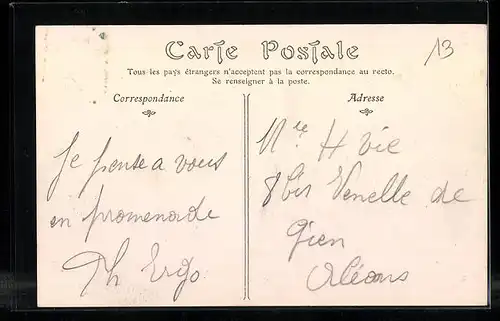 Carte Postale
13
Tous les pays étrangers n'acceptent pas la correspondance au recto.
Se renseigner à la poste.
Correspondance
Adresse
Je pense a vous
en promenade
Th
Mre H Vie
8 bis Venelle de
Gien
Orléans